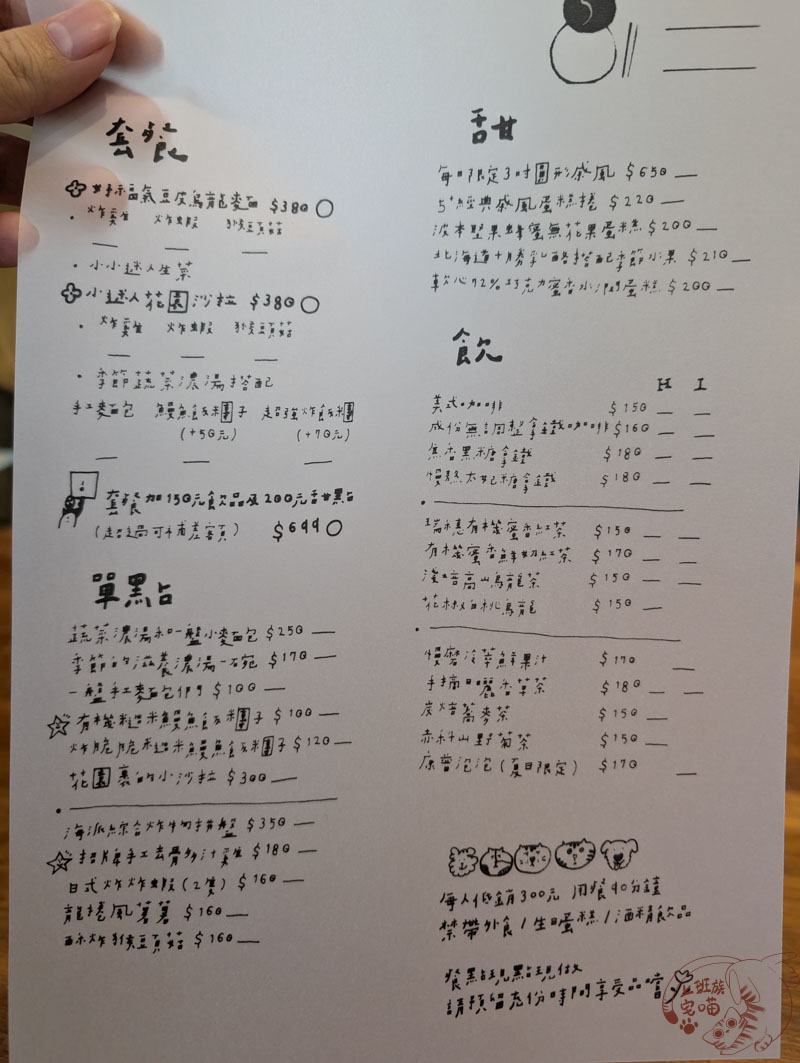 套餐
好福氣豆皮烏龍麥面 $380
炸雞 炸蝦 猴頭菇
小小迷人生菜
小迷人花園沙拉 $380
炸雞 炸蝦 猴頭菇
季節蔬菜濃湯搭配
手工麥面包 鰻魚飯糰子 超強炸飯糰
(+50元) (+70元)
套餐加150元飲品及200元甜點
(超過可補差額) $699
單點
蔬菜濃湯和一盤小麥面包 $250
季節的滋養濃湯一碗 $170
一盤手工麥面包們 $100
有機糙米鰻魚飯糰子 $100
炸脆脆糙米鰻魚飯糰子 $120
花園裏的小沙拉 $300
海派綜合炸物拼盤 $350
招牌手工去骨多汁雞 $180
日式炸炸蝦(2隻) $160
龍捲風薯薯 $160
酥炸猴頭菇 $160
甜
每日限定3吋圓形戚風 $650
5"經典戚風蛋糕捲 $220
波本堅果蜂蜜無花果蛋糕 $200
北海道十勝乳酪搭配季節水果 $210
軟心72%巧克力蜜香水滴蛋糕 $200
飲
H I
美式咖啡 $150
成份無調整拿鐵咖啡 $160
焦香黑糖拿鐵 $180
慢熬太妃糖拿鐵 $180
瑞穗有機蜜香紅茶 $150
有機蜜香鮮奶紅茶 $170
淺焙高山烏龍茶 $150
花椒白桃烏龍 $150
慢磨冷萃鮮果汁 $170
手摘日曬香草茶 $180
炭焙蕎麥茶 $150
赤科山野菊茶 $150
康普泡泡(夏日限定) $170
每人低銷300元 用餐90分鐘
禁帶外食/生日蛋糕/酒精飲品
餐點現點現做
請預留充份時間享受品嚐
上班族
宅喵